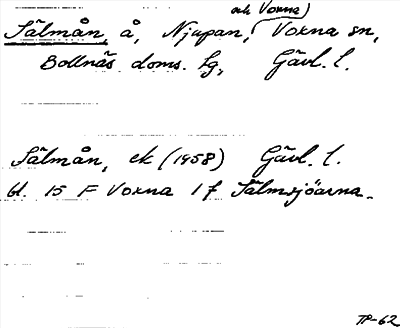 och Voxna)
Sälmån, å, Njupan, Voxna sn,
Bollnäs doms. lg, Gävl. l.
Sälmån, ek (1958) Gävl. l.
bl. 15 F Voxna 1 f Sälmsjöarna.
TP-62